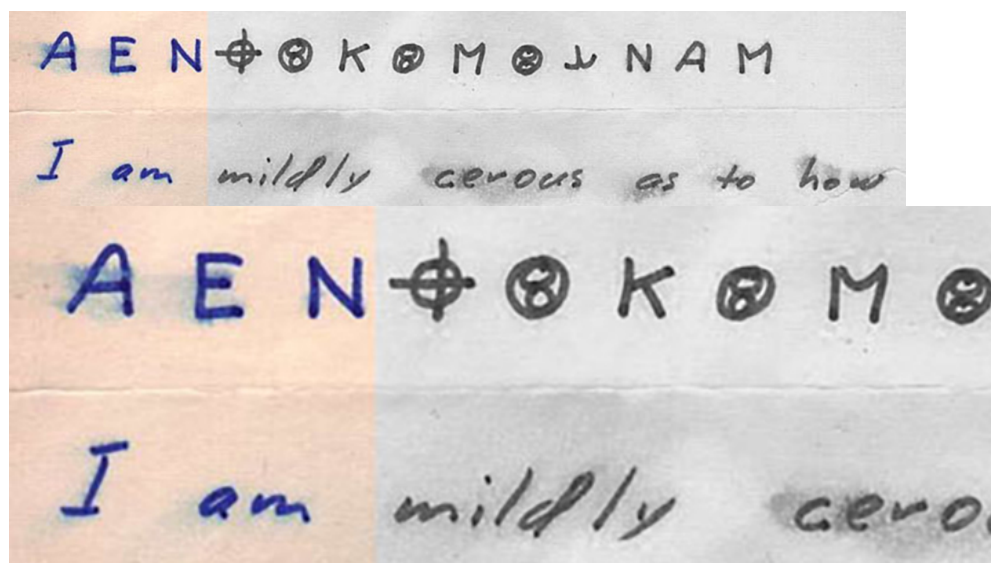 A E N ⌖ ⑧ K ⑧ M ⑧ N A M
I am mildly cerous as to how
A E N ⌖ ⑧ K ⑧ M ⑧
I am mildly cero